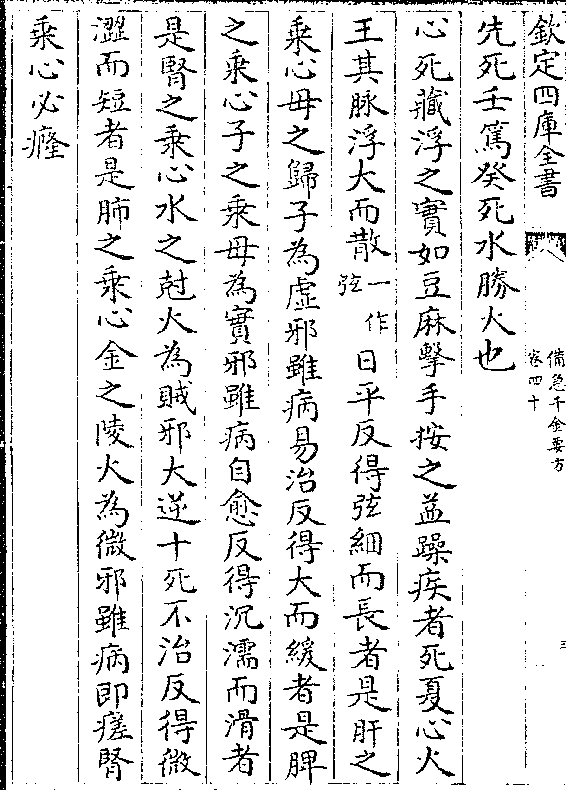 欽定四庫全書
備急千金要方
卷四十
三
先死壬篤癸死水勝火也
心死藏浮之實如豆麻擊手按之益躁疾者死夏心火
王其脉浮大而散一作弦曰平反得弦細而長者是肝之
乘心母之歸子為虛邪雖病易治反得大而緩者是脾
之乘心子之乘母為實邪雖病自愈反得沉濡而滑者
是腎之乘心水之尅火為賊邪大逆十死不治反得微
澀而短者是肺之乘心金之陵火為微邪雖病即瘥腎
乘心必癃